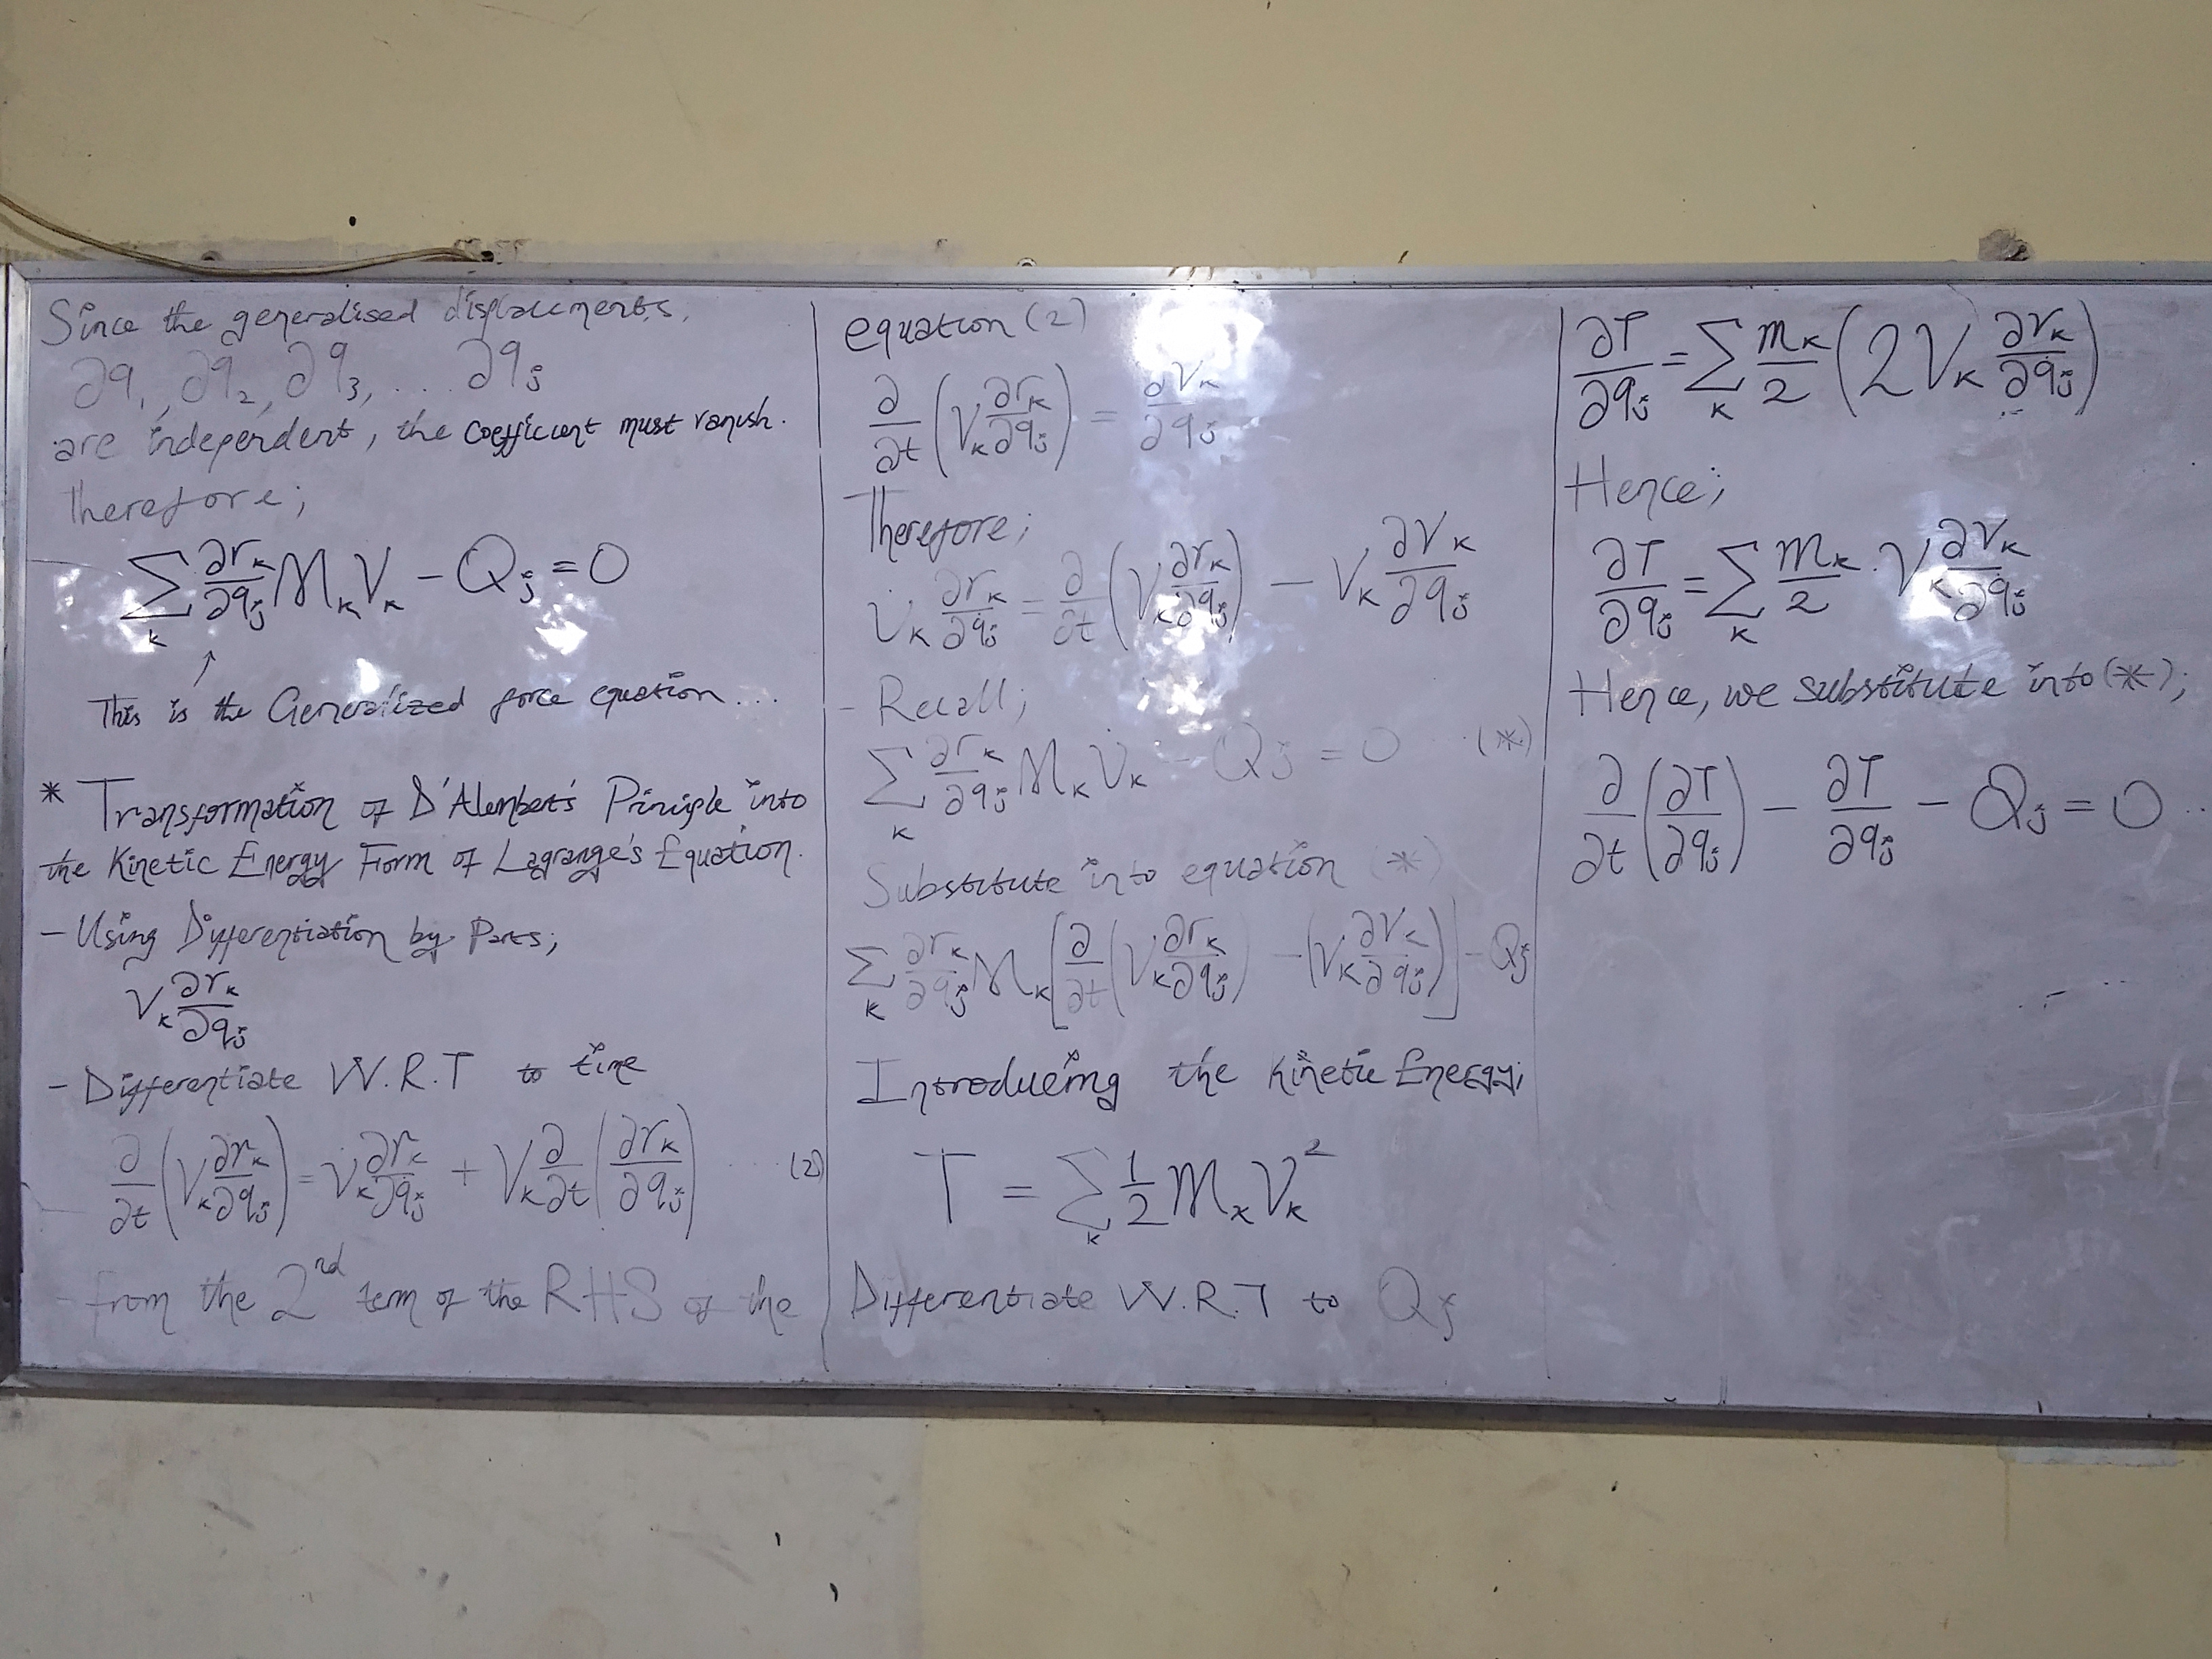 Since the generalised displacments,
∂q₁, ∂q₂, ∂q₃, ... ∂qⱼ
are independent, the coefficient must vanish.
Therefore;
∑ₖ ∂rₖ/∂qⱼ Mₖ Vₖ − Qⱼ = 0
↑
This is the Generalized force equation ...
* Transformation of D'Alembert's Priniple into
the Kinetic Energy Form of Lagrange's Equation.
- Using Differentiation by Parts;
Vₖ ∂rₖ/∂qⱼ
- Differentiate W.R.T to time
∂/∂t (Vₖ ∂rₖ/∂qⱼ) = V̇ₖ ∂rₖ/∂qⱼ + Vₖ ∂/∂t (∂rₖ/∂qⱼ) ... (2)
- from the 2nd term of the RHS of the
equation (2)
∂/∂t (Vₖ ∂rₖ/∂qⱼ) = ∂Vₖ/∂qⱼ
Therefore;
V̇ₖ ∂rₖ/∂qⱼ = ∂/∂t (Vₖ ∂rₖ/∂qⱼ) − Vₖ ∂Vₖ/∂qⱼ
- Recall;
∑ₖ ∂rₖ/∂qⱼ Mₖ V̇ₖ − Qⱼ = 0 ... (*)
Substitute into equation (*)
∑ₖ ∂rₖ/∂qⱼ Mₖ [∂/∂t (Vₖ ∂rₖ/∂qⱼ) − (Vₖ ∂Vₖ/∂qⱼ)] − Qⱼ
Introducing the Kinetic Energy;
T = ∑ₖ 1/2 Mₖ Vₖ²
Differentiate W.R.T to Qⱼ
∂T/∂qⱼ = ∑ₖ mₖ/2 (2Vₖ ∂vₖ/∂qⱼ)
Hence;
∂T/∂qⱼ = ∑ₖ mₖ/2 · Vₖ ∂Vₖ/∂qⱼ
Hence, we substitute into (*);
∂/∂t (∂T/∂qⱼ) − ∂T/∂qⱼ − Qⱼ = 0 ..